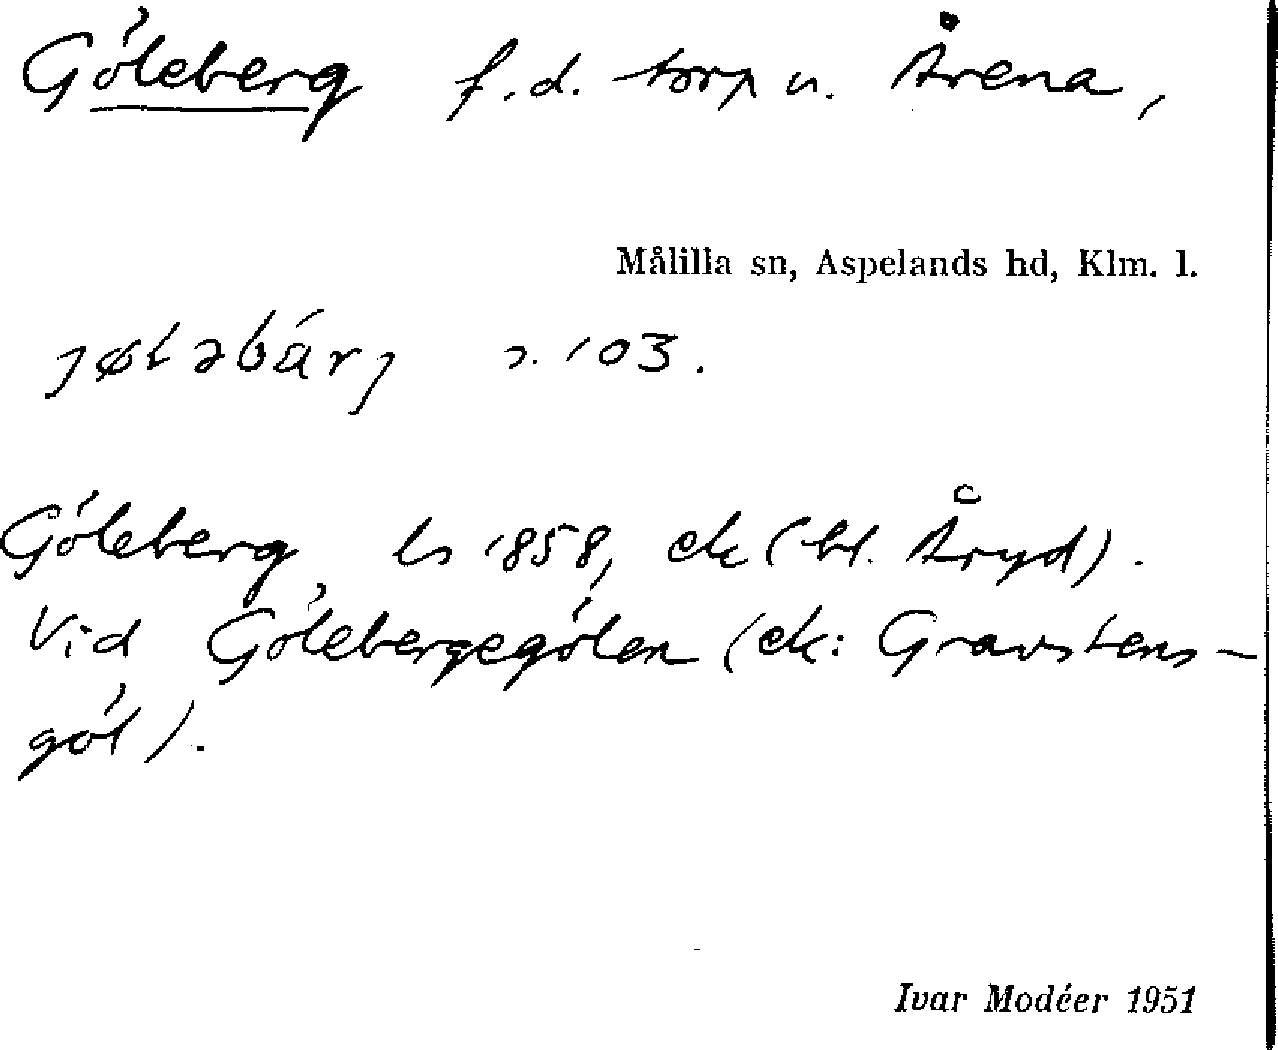 Göleberg f.d. torp u. Årena,
Målilla sn, Aspelands hd, Klm. l.
103.
Göleberg, ls 1858, ek (bl. Åryd).
Vid Gölebergegölen (ek: Gravstens-
göl).
Ivar Modéer 1951